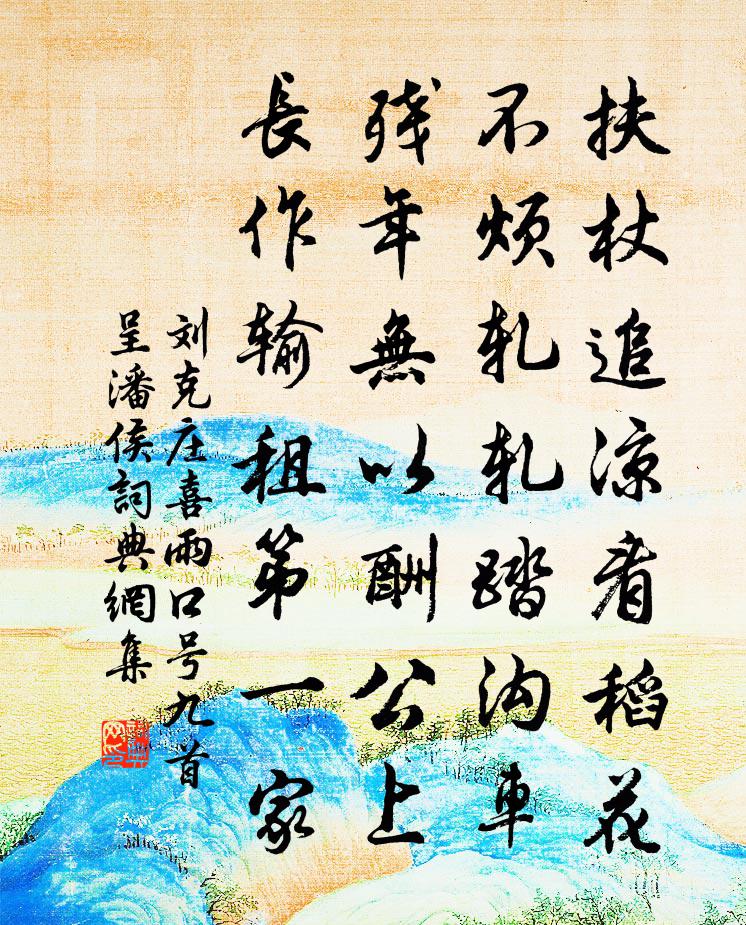 扶杖追凉看稻花
不烦轧轧踏沟车
残年無以酬公上
長作输租第一家
刘克庄喜雨口号九首
呈潘侯詞典網集